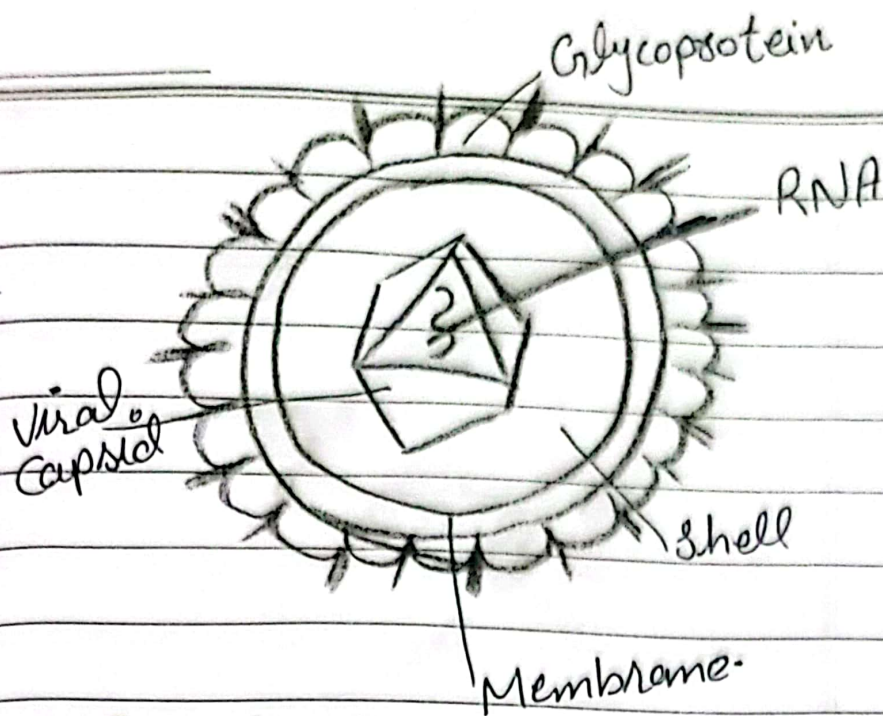 Glycoprotein
RNA
Viral
Capsid
Shell
Membrane.